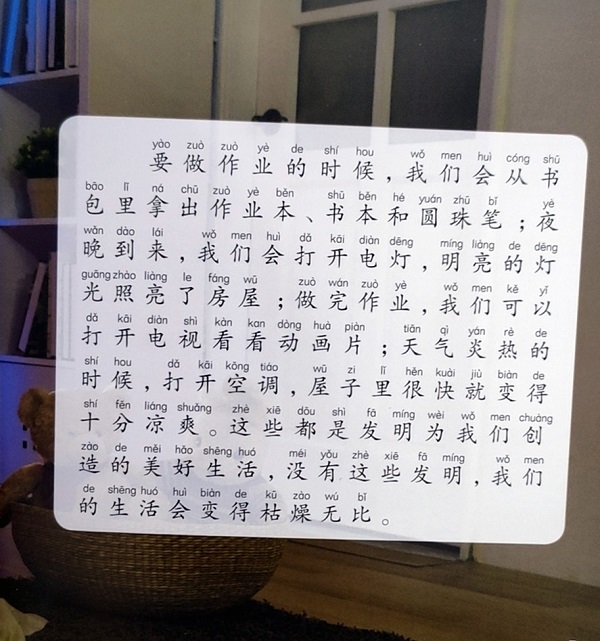 yào zuò zuò yè de shí hou wǒ men huì cóng shū
要做作业的时候，我们会从书
bāo lǐ ná chū zuò yè běn shū běn hé yuán zhū bǐ yè
包里拿出作业本、书本和圆珠笔；夜
wǎn dào lái wǒ men huì dǎ kāi diàn dēng míng liàng de dēng
晚到来，我们会打开电灯，明亮的灯
guāng zhào liàng le fáng wū zuò wán zuò yè wǒ men kě yǐ
光照亮了房屋；做完作业，我们可以
dǎ kāi diàn shì kàn kan dòng huà piàn tiān qì yán rè de
打开电视看看动画片；天气炎热的
shí hou dǎ kāi kōng tiáo wū zi lǐ hěn kuài jiù biàn de
时候，打开空调，屋子里很快就变得
shí fēn liáng shuǎng zhè xiē dōu shì fā míng wèi wǒ men chuàng
十分凉爽。这些都是发明为我们创
zào de měi hǎo shēng huó méi yǒu zhè xiē fā míng wǒ men
造的美好生活，没有这些发明，我们
de shēng huó huì biàn de kū zào wú bǐ
的生活会变得枯燥无比。